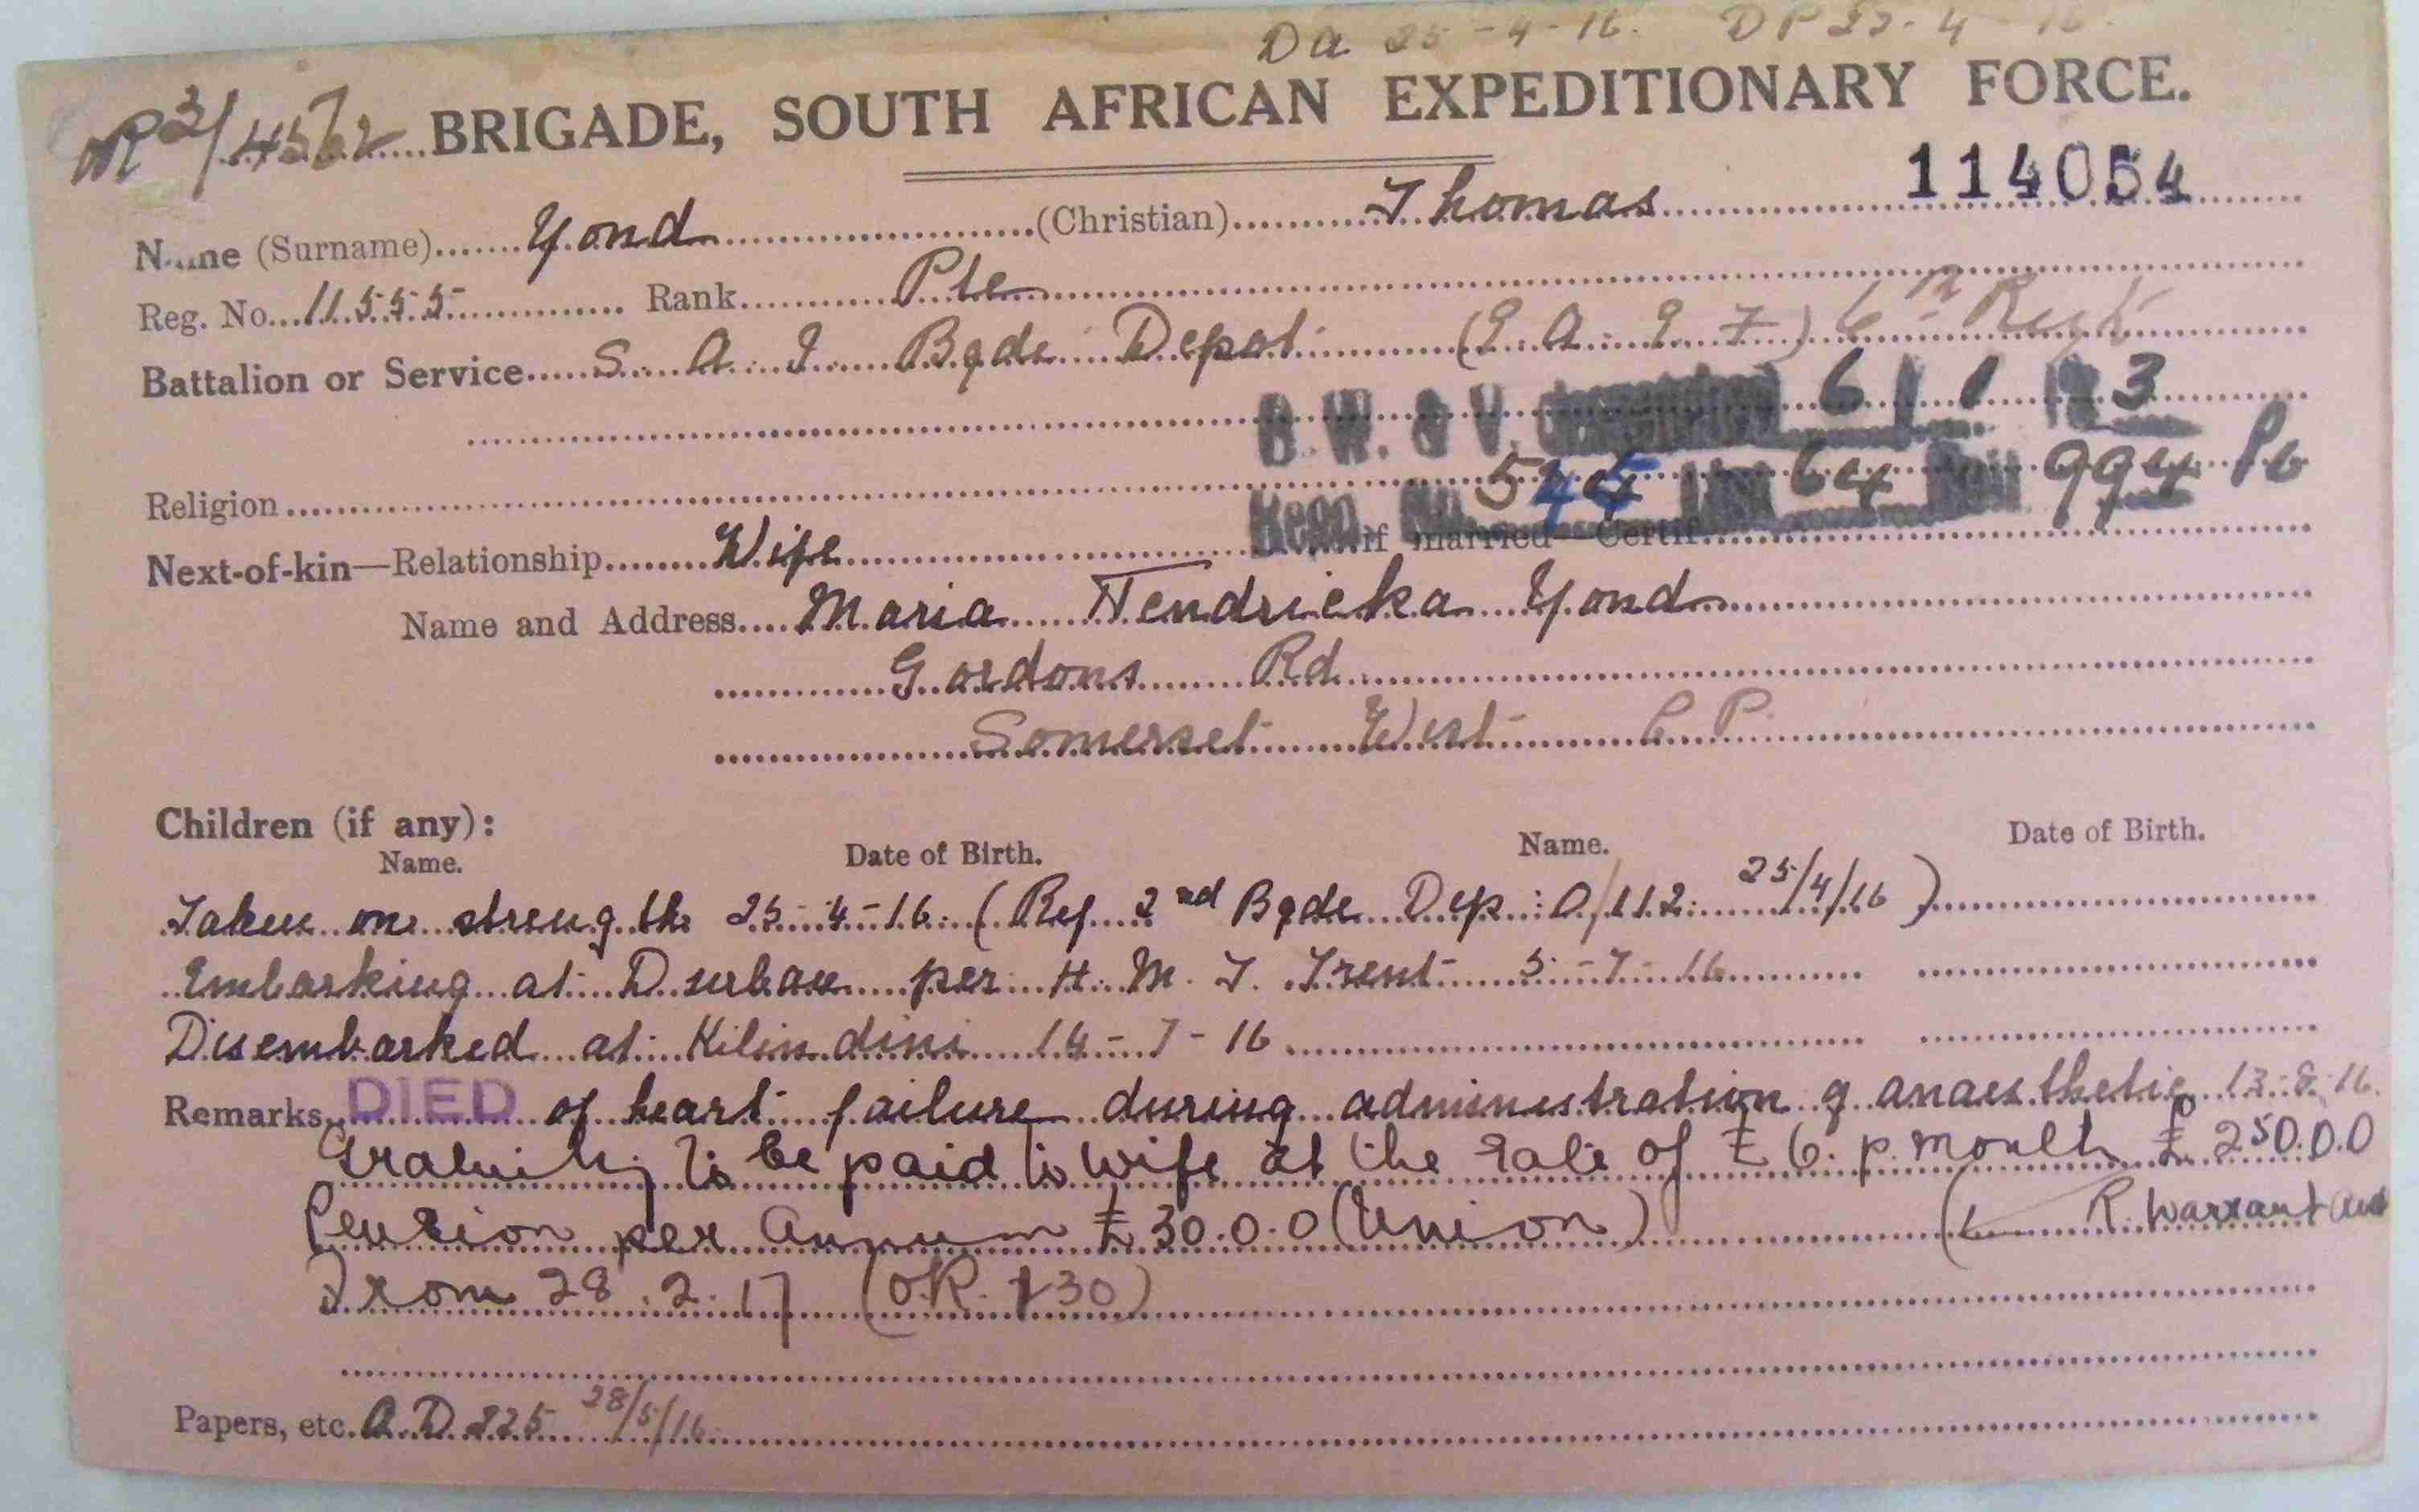 DA 25-4-16. DP 25-4-16.
3/4562 BRIGADE, SOUTH AFRICAN EXPEDITIONARY FORCE.
114054
Name (Surname) Yond (Christian) Thomas
Reg. No. 11555 Rank Pte
Battalion or Service S. A. I. Bgde Depot (E. A. E. F.) 6th
B. W. & V. 6 1 3
Religion
545 64 994 P6
Next-of-kin—Relationship Wife If married—Certif.
Name and Address Maria Hendricka Yond
Gordons Rd
Somerset West C. P.
Children (if any):
Name. Date of Birth. Name. Date of Birth.
Taken on strength 25-4-16. (Ref 2nd Bgde Dep: O/112. 25/4/16)
Embarking at Durban per H. M. T. Trent 5-7-16
Disembarked at Kilindini 14-7-16
Remarks DIED of heart failure during administration of anaesthetic 13-8-16.
Gratuity to be paid to wife at the rate of £6. p. month £250.0.0
Pension per annum £30.0.0 (Union) ( R. Warrant
From 28.2.17 (OR. 130)
Papers, etc. A. D. 225 28/5/16